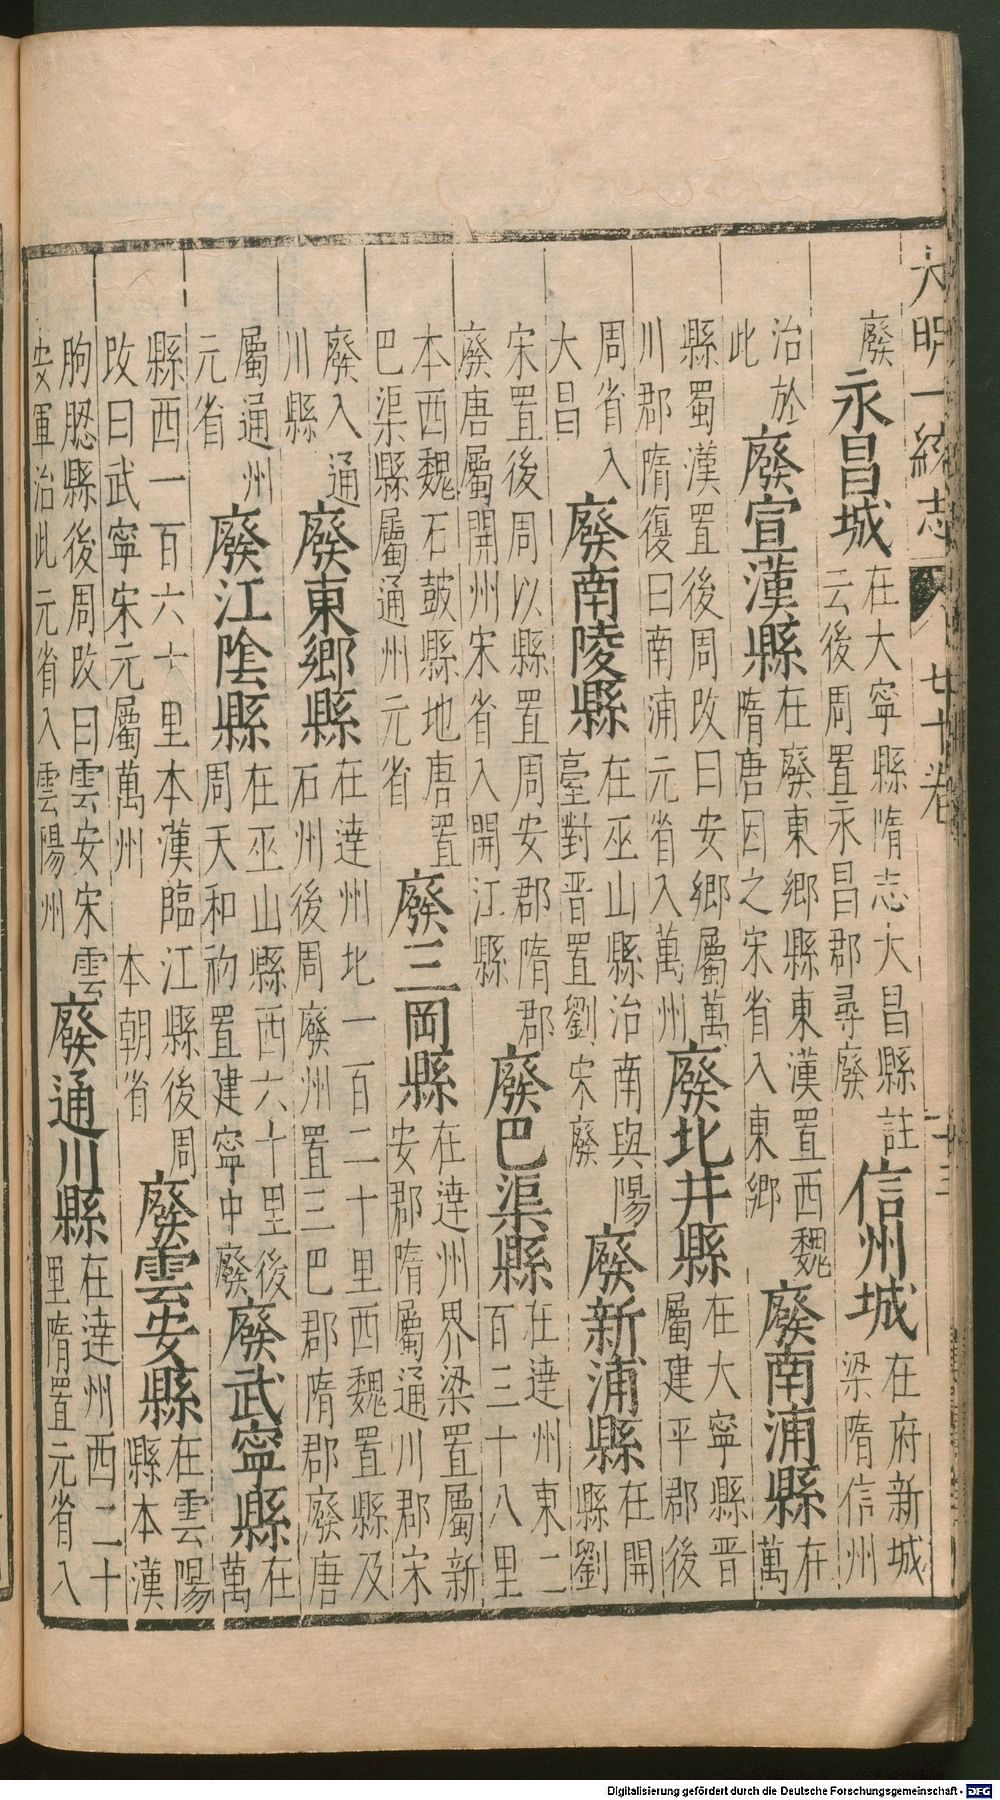 大明一統志 七十卷
廢永昌城在大寧縣隋志大昌縣註云後周置永昌郡尋廢信州城在府新城梁隋信州
治於此廢宣漢縣在廢東鄉縣東漢置西魏隋唐因之宋省入東鄉廢南浦縣在萬
縣蜀漢置後周改曰安鄉屬萬川郡隋復曰南浦元省入萬州廢北井縣在大寧縣晋屬建平郡後
周省入大昌廢南陵縣在巫山縣治南與陽臺對晋置劉宋廢廢新浦縣在開縣劉
宋置後周以縣置周安郡隋郡廢唐屬開州宋省入開江縣廢巴渠縣在達州東二百三十八里
本西魏石鼓縣地唐置巴渠縣屬通州元省廢三岡縣在達州界梁置屬新安郡隋屬通川郡宋
廢入通川縣廢東鄉縣在達州北一百二十里西魏置縣及石州後周廢州置三巴郡隋郡廢唐
屬通州元省廢江陰縣在巫山縣西六十里後周天和初置建寧中廢廢武寧縣在萬
縣西一百六十里本漢臨江縣後周改曰武寧宋元屬萬州 本朝省廢雲安縣在雲陽縣本漢
朐䏰縣後周改曰雲安宋雲安軍治此元省入雲陽州廢通川縣在達州西二十里隋置元省入
Digitalisierung gefördert durch die Deutsche Forschungsgemeinschaft - DFG